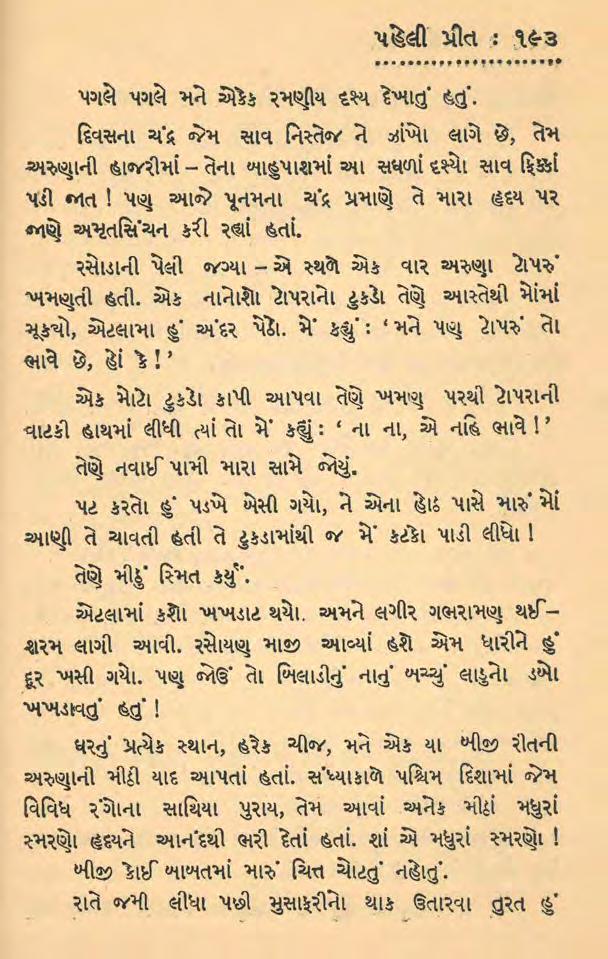 પહેલી પ્રીત : ૧૯૩
પગલે પગલે મને એકેક રમણીય દશ્ય દેખાતું હતું.
દિવસના ચંદ્ર જેમ સાવ નિસ્તેજ ને ઝાંખો લાગે છે, તેમ
અરુણાની હાજરીમાં – તેના બાહુપાશમાં આ સઘળાં દશ્યો સાવ ફિક્કાં
પડી જાત ! પણ આજે પૂનમના ચંદ્ર પ્રમાણે તે મારા હૃદય પર
જાણે અમૃતસિંચન કરી રહ્યાં હતાં.
રસોડાની પેલી જગ્યા – એ સ્થળે એક વાર અરુણા ટોપરું
ખમણતી હતી. એક નાનોશો ટોપરાનો ટુકડો તેણે આસ્તેથી મોંમાં
મૂક્યો, એટલામા હું અંદર પેઠો. મેં કહ્યું : ‘મને પણ ટોપરું તો
ભાવે છે, હોં કે !’
એક મોટો ટુકડો કાપી આપવા તેણે ખમણ પરથી ટોપરાની
વાટકી હાથમાં લીધી ત્યાં તો મેં કહ્યું : ‘ ના ના, એ નહિ ભાવે !’
તેણે નવાઈ પામી મારા સામે જોયું.
પટ કરતો હું પડખે બેસી ગયો, ને એના હોઠ પાસે મારું મોં
આણી તે ચાવતી હતી તે ટુકડામાંથી જ મેં કટકો પાડી લીધો !
તેણે મીઠું સ્મિત કર્યું.
એટલામાં કશો ખખડાટ થયો. અમને લગીર ગભરામણ થઈ–
શરમ લાગી આવી. રસોયણ માજી આવ્યાં હશે એમ ધારીને હું
દૂર ખસી ગયો. પણ જોઉં તો બિલાડીનું નાનું બચ્ચું લાડુનો ડબો
ખખડાવતું હતું !
ઘરનું પ્રત્યેક સ્થાન, હરેક ચીજ, મને એક યા બીજી રીતની
અરુણાની મીઠી યાદ આપતાં હતાં. સંધ્યાકાળે પશ્ચિમ દિશામાં જેમ
વિવિધ રંગોના સાથિયા પુરાય, તેમ આવાં અનેક મીઠાં મધુરાં
સ્મરણો હૃદયને આનંદથી ભરી દેતાં હતાં. શાં એ મધુરાં સ્મરણો !
બીજી કોઈ બાબતમાં મારું ચિત્ત ચોટતું નહોતું.
રાતે જમી લીધા પછી મુસાફરીનો થાક ઉતારવા તુરત હું